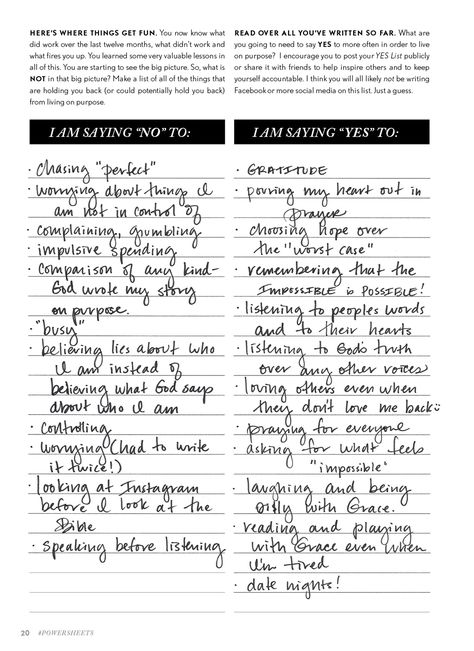 HERE'S WHERE THINGS GET FUN. You now know what
did work over the last twelve months, what didn't work and
what fires you up. You learned some very valuable lessons in
all of this. You are starting to see the big picture. So, what is
NOT in that big picture? Make a list of all of the things that
are holding you back (or could potentially hold you back)
from living on purpose.
I AM SAYING "NO" TO:
· Chasing "perfect"
· worrying about things I
am not in control of
· complaining, grumbling
· impulsive spending
· comparison of any kind-
God wrote my story
on purpose.
· "busy"
· believing lies about who
I am instead of
believing what God says
about who I am
· controlling
· worrying (had to write
it twice!)
· looking at Instagram
before I look at the
Bible
· speaking before listening
READ OVER ALL YOU'VE WRITTEN SO FAR. What are
you going to need to say YES to more often in order to live
on purpose? I encourage you to post your YES List publicly
or share it with friends to help inspire others and to keep
yourself accountable. I think you will all likely not be writing
Facebook or more social media on this list. Just a guess.
I AM SAYING "YES" TO:
· GRATITUDE
· pouring my heart out in
prayer
· choosing hope over
the "worst case"
· remembering that the
IMPOSSIBLE is POSSIBLE!
· listening to peoples words
and to their hearts
· listening to God's truth
over any other voices
· loving others even when
they don't love me back
· praying for everyone
· asking for what feels
"impossible"
· laughing and being
silly with Grace.
· reading and playing
with Grace even when
I'm tired
· date nights!
20 #POWERSHEETS